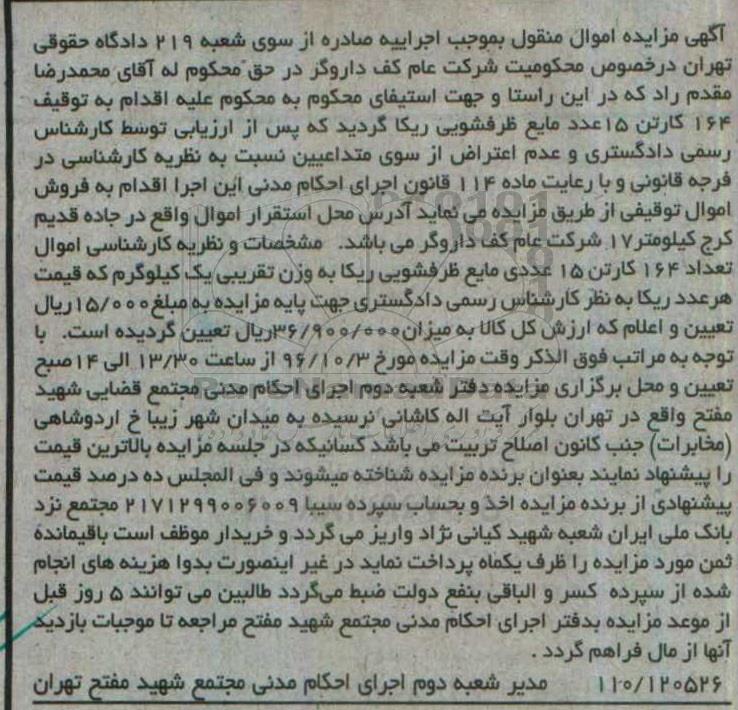 آگهی مزایده اموال منقول بموجب اجراییه صادره از سوی شعبه ۲۱۹ دادگاه حقوقی
تهران درخصوص محکومیت شرکت عام کف داروگر در حق محکوم له آقای محمدرضا
مقدم راد که در این راستا و جهت استیفای محکوم به محکوم علیه اقدام به توقیف
۱۶۴ کارتن ۱۵عدد مایع ظرفشویی ریکا گردید که پس از ارزیابی توسط کارشناس
رسمی دادگستری و عدم اعتراض از سوی متداعیین نسبت به نظریه کارشناسی در
فرجه قانونی و با رعایت ماده ۱۱۴ قانون اجرای احکام مدنی این اجرا اقدام به فروش
اموال توقیفی از طریق مزایده می نماید آدرس محل استقرار اموال واقع در جاده قدیم
کرج کیلومتر۱۷ شرکت عام کف داروگر می باشد. مشخصات و نظریه کارشناسی اموال
تعداد ۱۶۴ کارتن ۱۵ عددی مایع ظرفشویی ریکا به وزن تقریبی یک کیلوگرم که قیمت
هرعدد ریکا به نظر کارشناس رسمی دادگستری جهت پایه مزایده به مبلغ۱۵/۰۰۰ریال
تعیین و اعلام که ارزش کل کالا به میزان۳۶/۹۰۰/۰۰۰ریال تعیین گردیده است. با
توجه به مراتب فوق الذکر وقت مزایده مورخ ۹۶/۱۰/۳ از ساعت ۱۳/۳۰ الی ۱۴صبح
تعیین و محل برگزاری مزایده دفتر شعبه دوم اجرای احکام مدنی مجتمع قضایی شهید
مفتح واقع در تهران بلوار آیت اله کاشانی نرسیده به میدان شهر زیبا خ اردوشاهی
(مخابرات) جنب کانون اصلاح تربیت می باشد کسانیکه در جلسه مزایده بالاترین قیمت
را پیشنهاد نمایند بعنوان برنده مزایده شناخته میشوند و فی المجلس ده درصد قیمت
پیشنهادی از برنده مزایده اخذ و بحساب سپرده سیبا ۲۱۷۱۲۹۹۰۰۶۰۰۹ مجتمع نزد
بانک ملی ایران شعبه شهید کیانی نژاد واریز می گردد و خریدار موظف است باقیمانده
ثمن مورد مزایده را ظرف یکماه پرداخت نماید در غیر اینصورت بدوا هزینه های انجام
شده از سپرده کسر و الباقی بنفع دولت ضبط می‌گردد طالبین می توانند ۵ روز قبل
از موعد مزایده بدفتر اجرای احکام مدنی مجتمع شهید مفتح مراجعه تا موجبات بازدید
آنها از مال فراهم گردد .
۱۱۰/۱۲۰۵۲۶ مدیر شعبه دوم اجرای احکام مدنی مجتمع شهید مفتح تهران